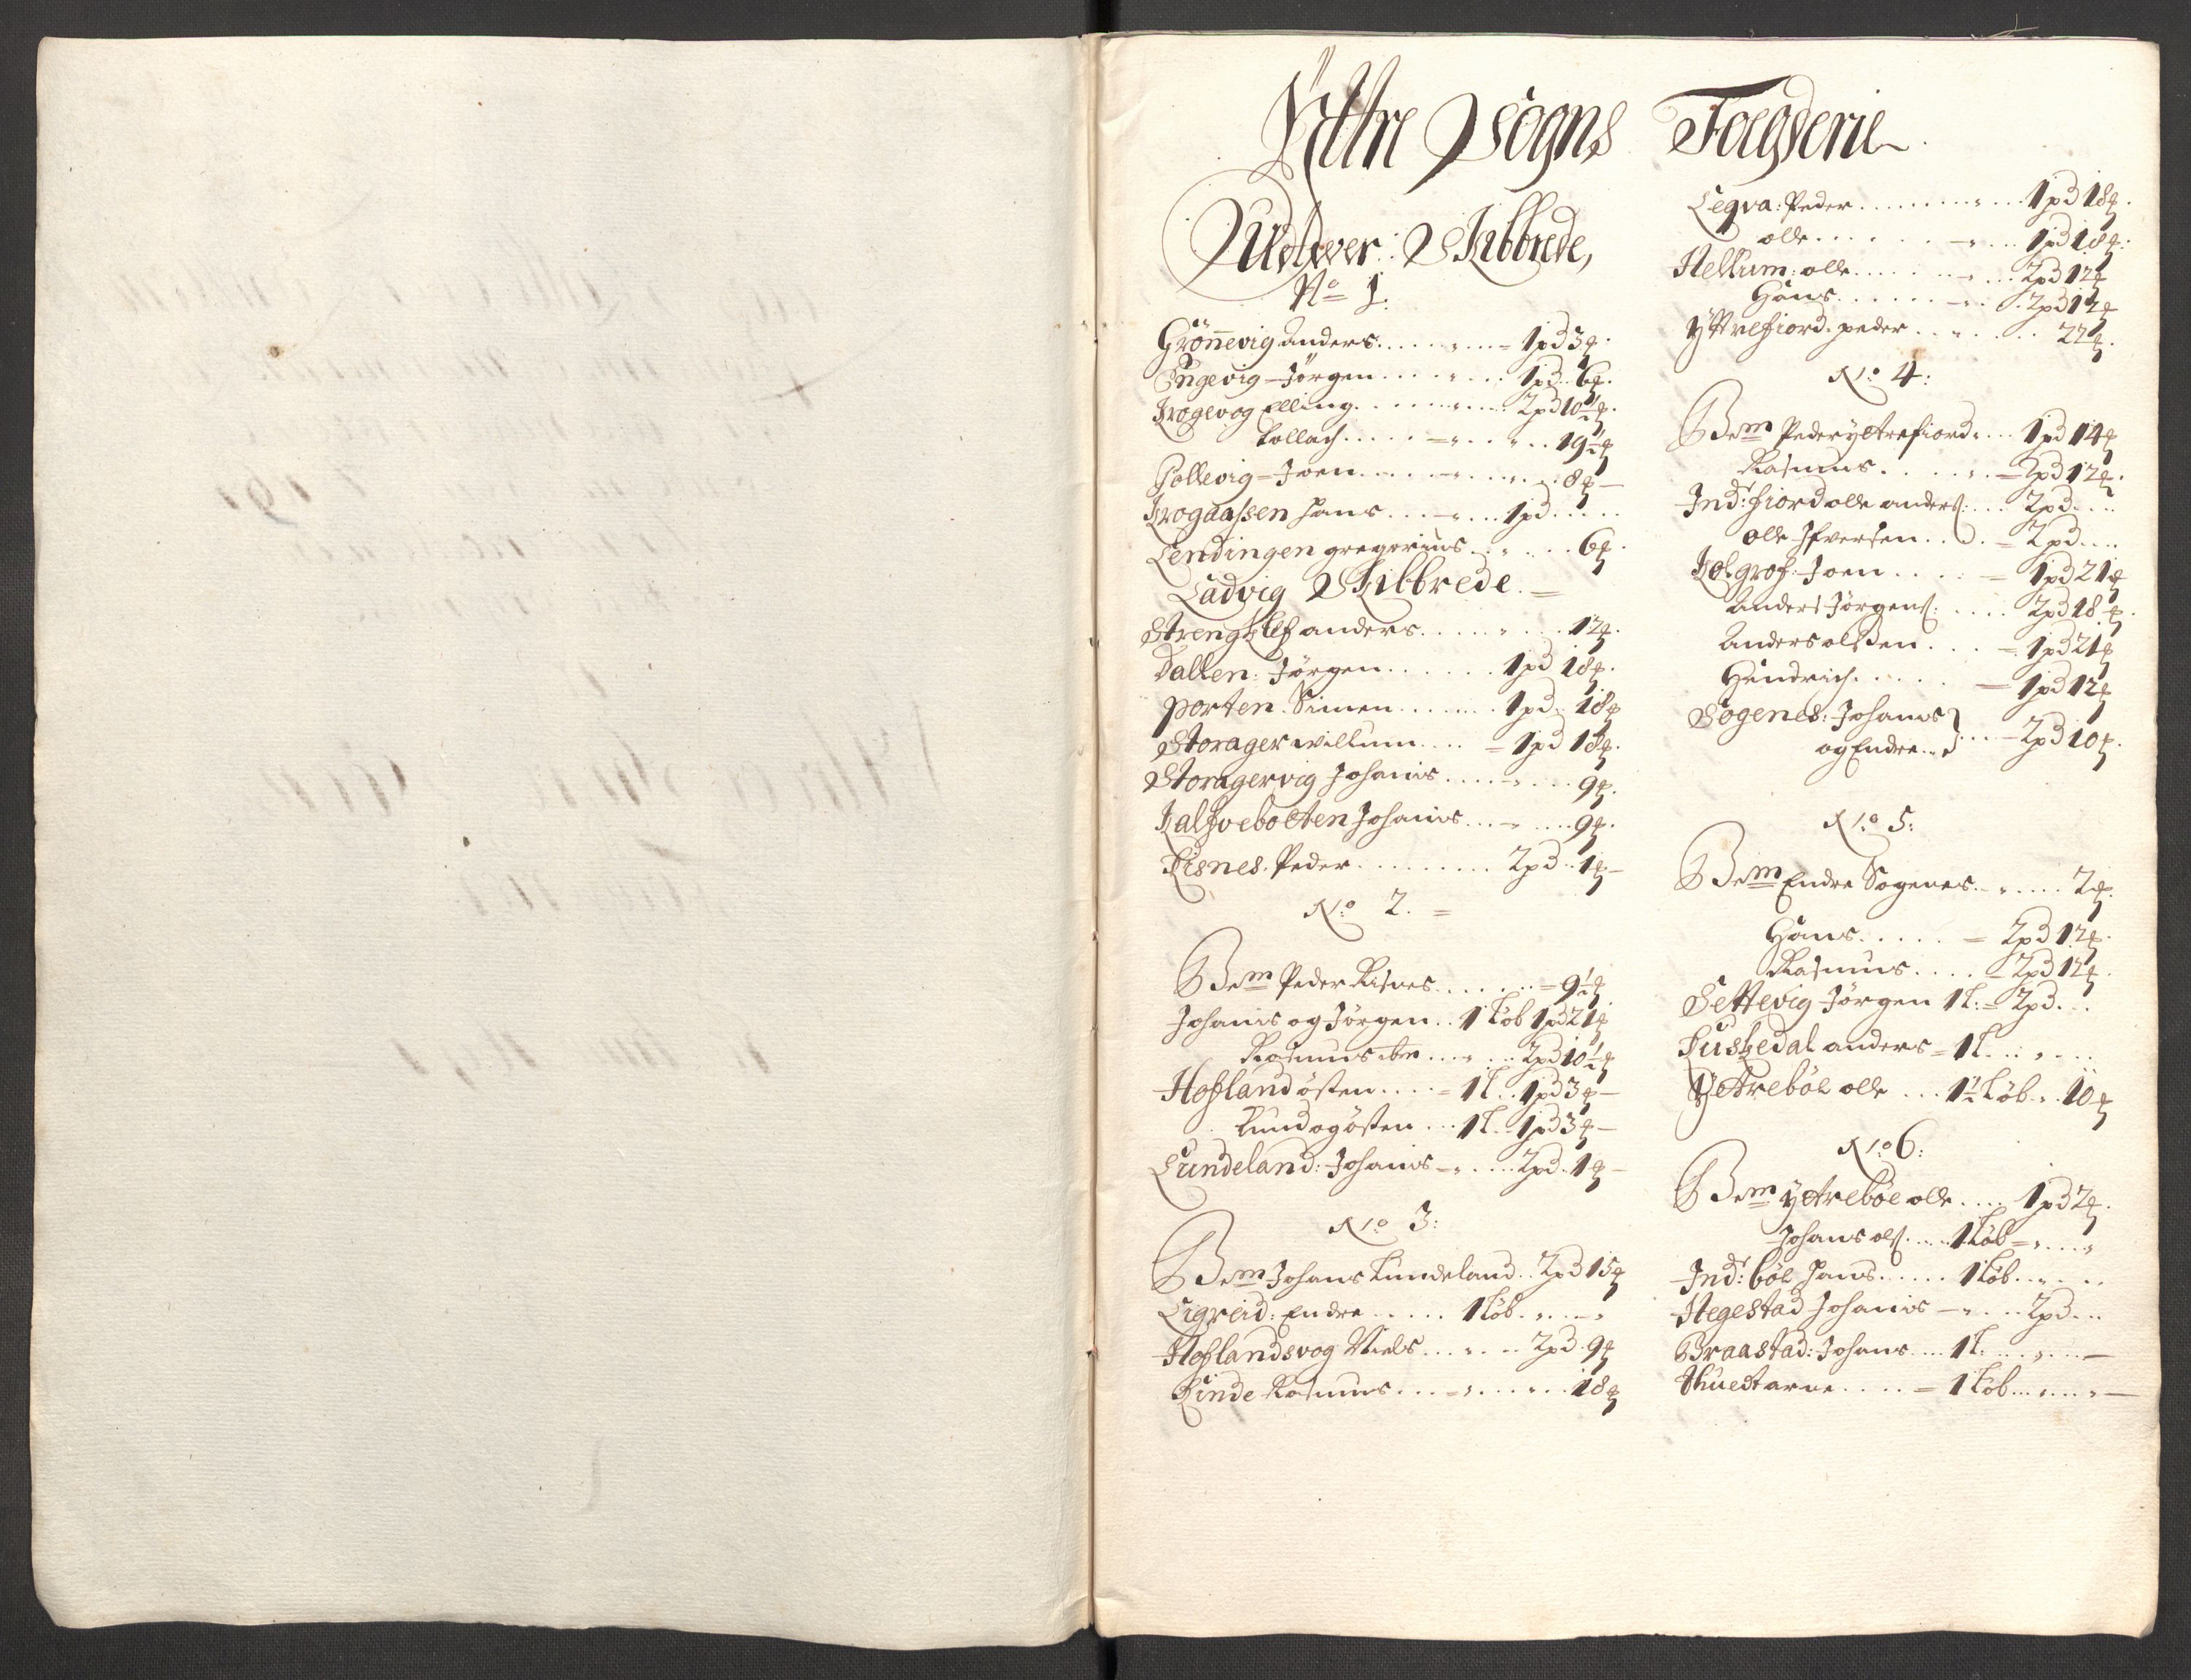 Yttre Sogns Foegderie
Udtwer: Skibbrede,
No 1.
Grönnevig anders ..... " ... 1pd 3℔.
Engevig Jörgen .... " ... 1pd. 6℔.
Krogevog Elling ........ 2pd 10½℔.
Tollach .... " .. " .. 19½℔
Pollevig Joen ........ 8℔
Krogaassen Hans ... " .. 1pd ....
Lendingen gregorius .. " .... 6℔.
Ladvig Skibbrede.
anders ..... " ... 12℔.
Dallen: Jörgen ...... 1pd 18℔.
Porten. Simen ....... 1pd. 18℔
Storager willum .... 1pd 18℔.
Storagervig Johanis ........ 9℔.
Kalfvebotten Johanis ... " .... 9℔.
Risnes. Peder ......... 2pd. 1℔
No 2.
Bem Peder Risnes ....... 9½℔
Johanis og Jörgen .. 1 Löb 1pd 21℔
Rasmus ibm ... " .. 2pd 10½℔
Hofland östen .... 1 L. 1pd 3℔
Knud og östen ... 1 L. 1pd 3℔
Lundeland: Johanis " .... 2pd. 1℔
No 3:
Bem Johans Lundeland .. 2pd 15℔
Ligreid: Endre ..... 1 Löb. " ... "
Hoflandsvog Niels ... " ... 2pd. 9℔
Rinde Rasmus ... " ... " .. 18℔
Leqva: Peder ........ " ... 1pd 18℔.
olle ........ " ... 1pd 18℔.
Hellum: olle ...... " ... 2pd 12℔
Hans ....... " .. 2pd 12℔
Yttrefiord. peder .. " .... 22℔.
No 4:
Bem Peder yttrefiord. ... 1pd 14℔
Rasmus ..... " . 2pd 12℔.
Ind: fiord olle anders: ... 2pd ....
olle Ifversen ... 2pd ....
Kolgrof: Joen .... 1pd 21℔
Anders Jörgens: .... 2pd 18℔.
Anders olsen ... 1pd 21℔
Hendrich ..... 1pd 12℔
Sögenes: Johanis }
og Endre .. } ... 2pd 10℔.
No 5:
Bem Endre Sögenes. " .... 2℔.
Hans ..... 2pd 12℔.
Rasmus .... 2pd 12℔.
Settevig Jörgen 1 L: 2pd ...
Tuskedal anders 1 L ... " ...
Yttreböe olle ... 1½ Löb. " 10℔
No 6:
Bem yttreböe olle .... 1pd 2℔.
Johans ols. .... 1 Löb " ... "
Ind: böe Hans ..... 1 Löb .. " ...
Hegestad Johanis " ... 2pd ...
Braastad: Johans ... 1 L: .. " ..
Thuedt arne .... 1 Löb ... " ... "